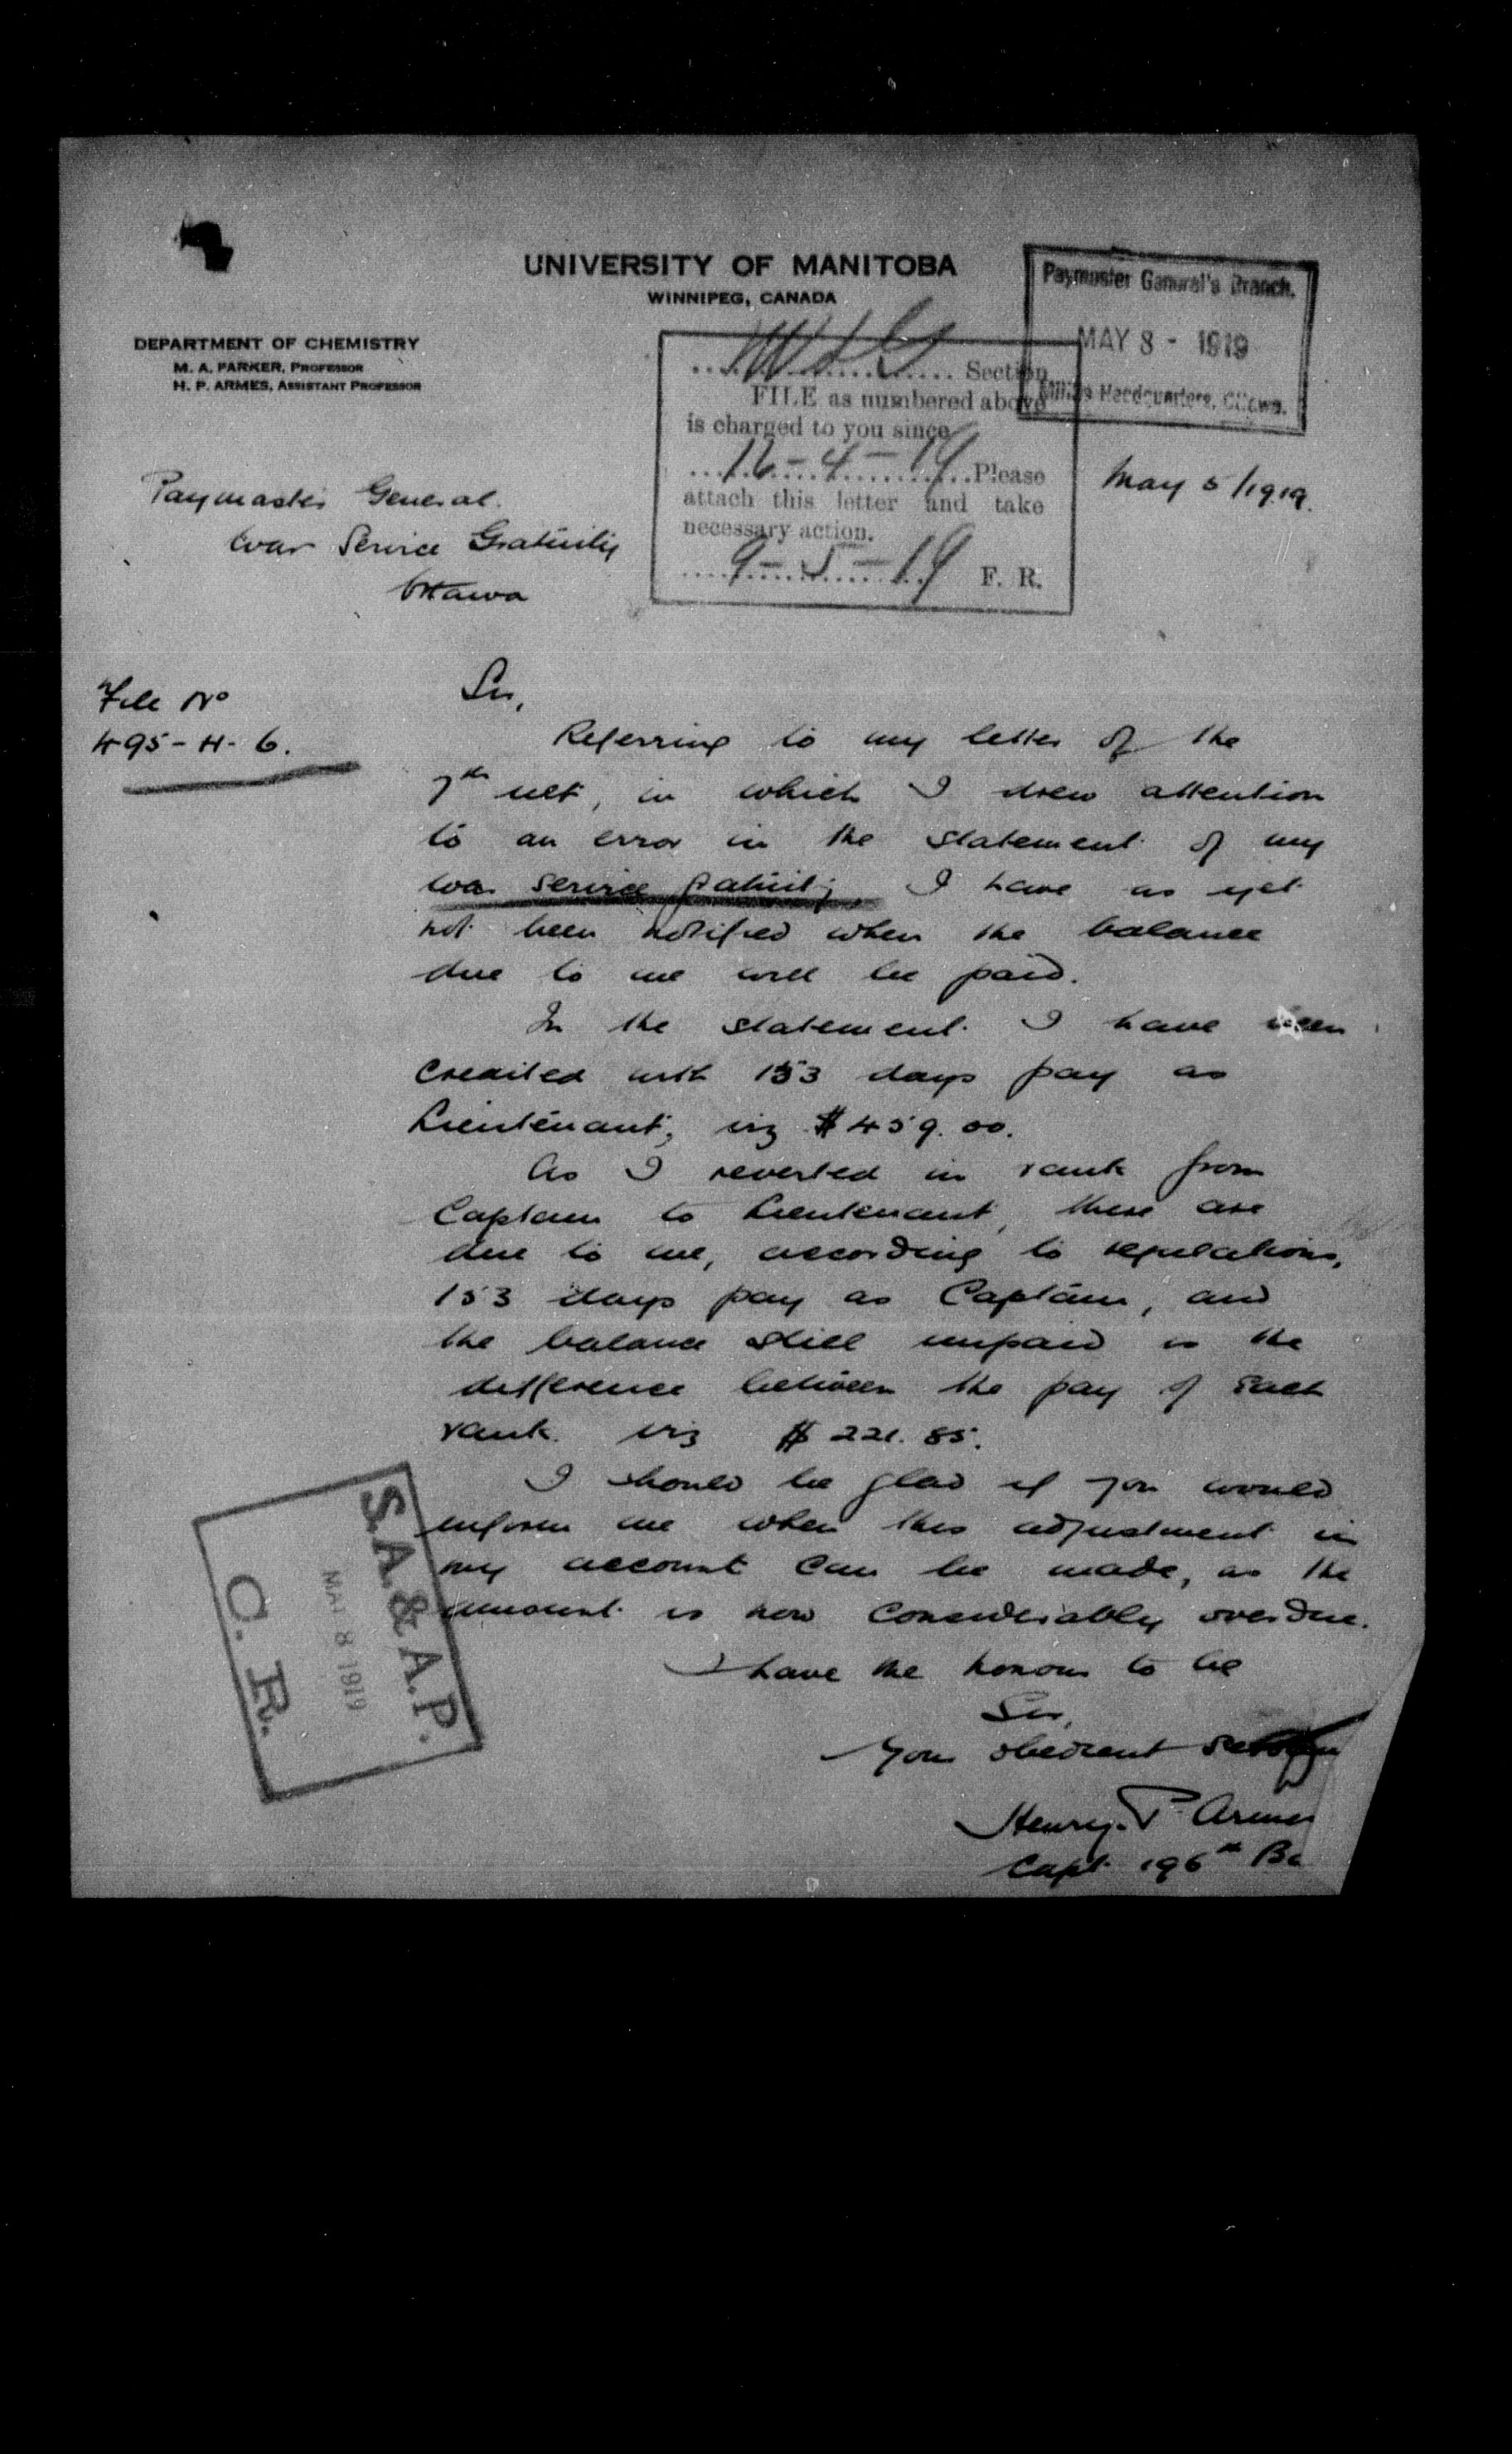 UNIVERSITY OF MANITOBA
WINNIPEG, CANADA
DEPARTMENT OF CHEMISTRY
M. A. PARKER, PROFESSOR
H. P. ARMES, ASSISTANT PROFESSOR
Paymaster General's Branch.
MAY 8 - 1919
Militia Headquarters, Ottawa.
Section
FILE as numbered above
is charged to you since
16-4-19 Please
attach this letter and take
necessary action.
9-5-19 F. R.
May 5/1919.
Paymaster General.
War Service Gratuity
Ottawa
File No
495-H-6.
Sir,
Referring to my letter of the
7th ult, in which I drew attention
to an error in the statement of my
war service gratuity, I have as yet
not been notified when the balance
due to me will be paid.
In the statement I have been
credited with 153 days pay as
Lieutenant, viz $459.00.
As I reverted in rank from
Captain to Lieutenant, there are
due to me, according to regulations,
153 days pay as Captain, and
the balance still unpaid is the
difference between the pay of each
rank. viz $221.85.
I should be glad if you would
inform me when this adjustment in
my account can be made, as the
amount is now considerably overdue.
I have the honour to be
Sir,
Your obedient
Henry. P. Armes
Capt. 196th
S.A. & A.P.
MAY 8 1919
C. R.